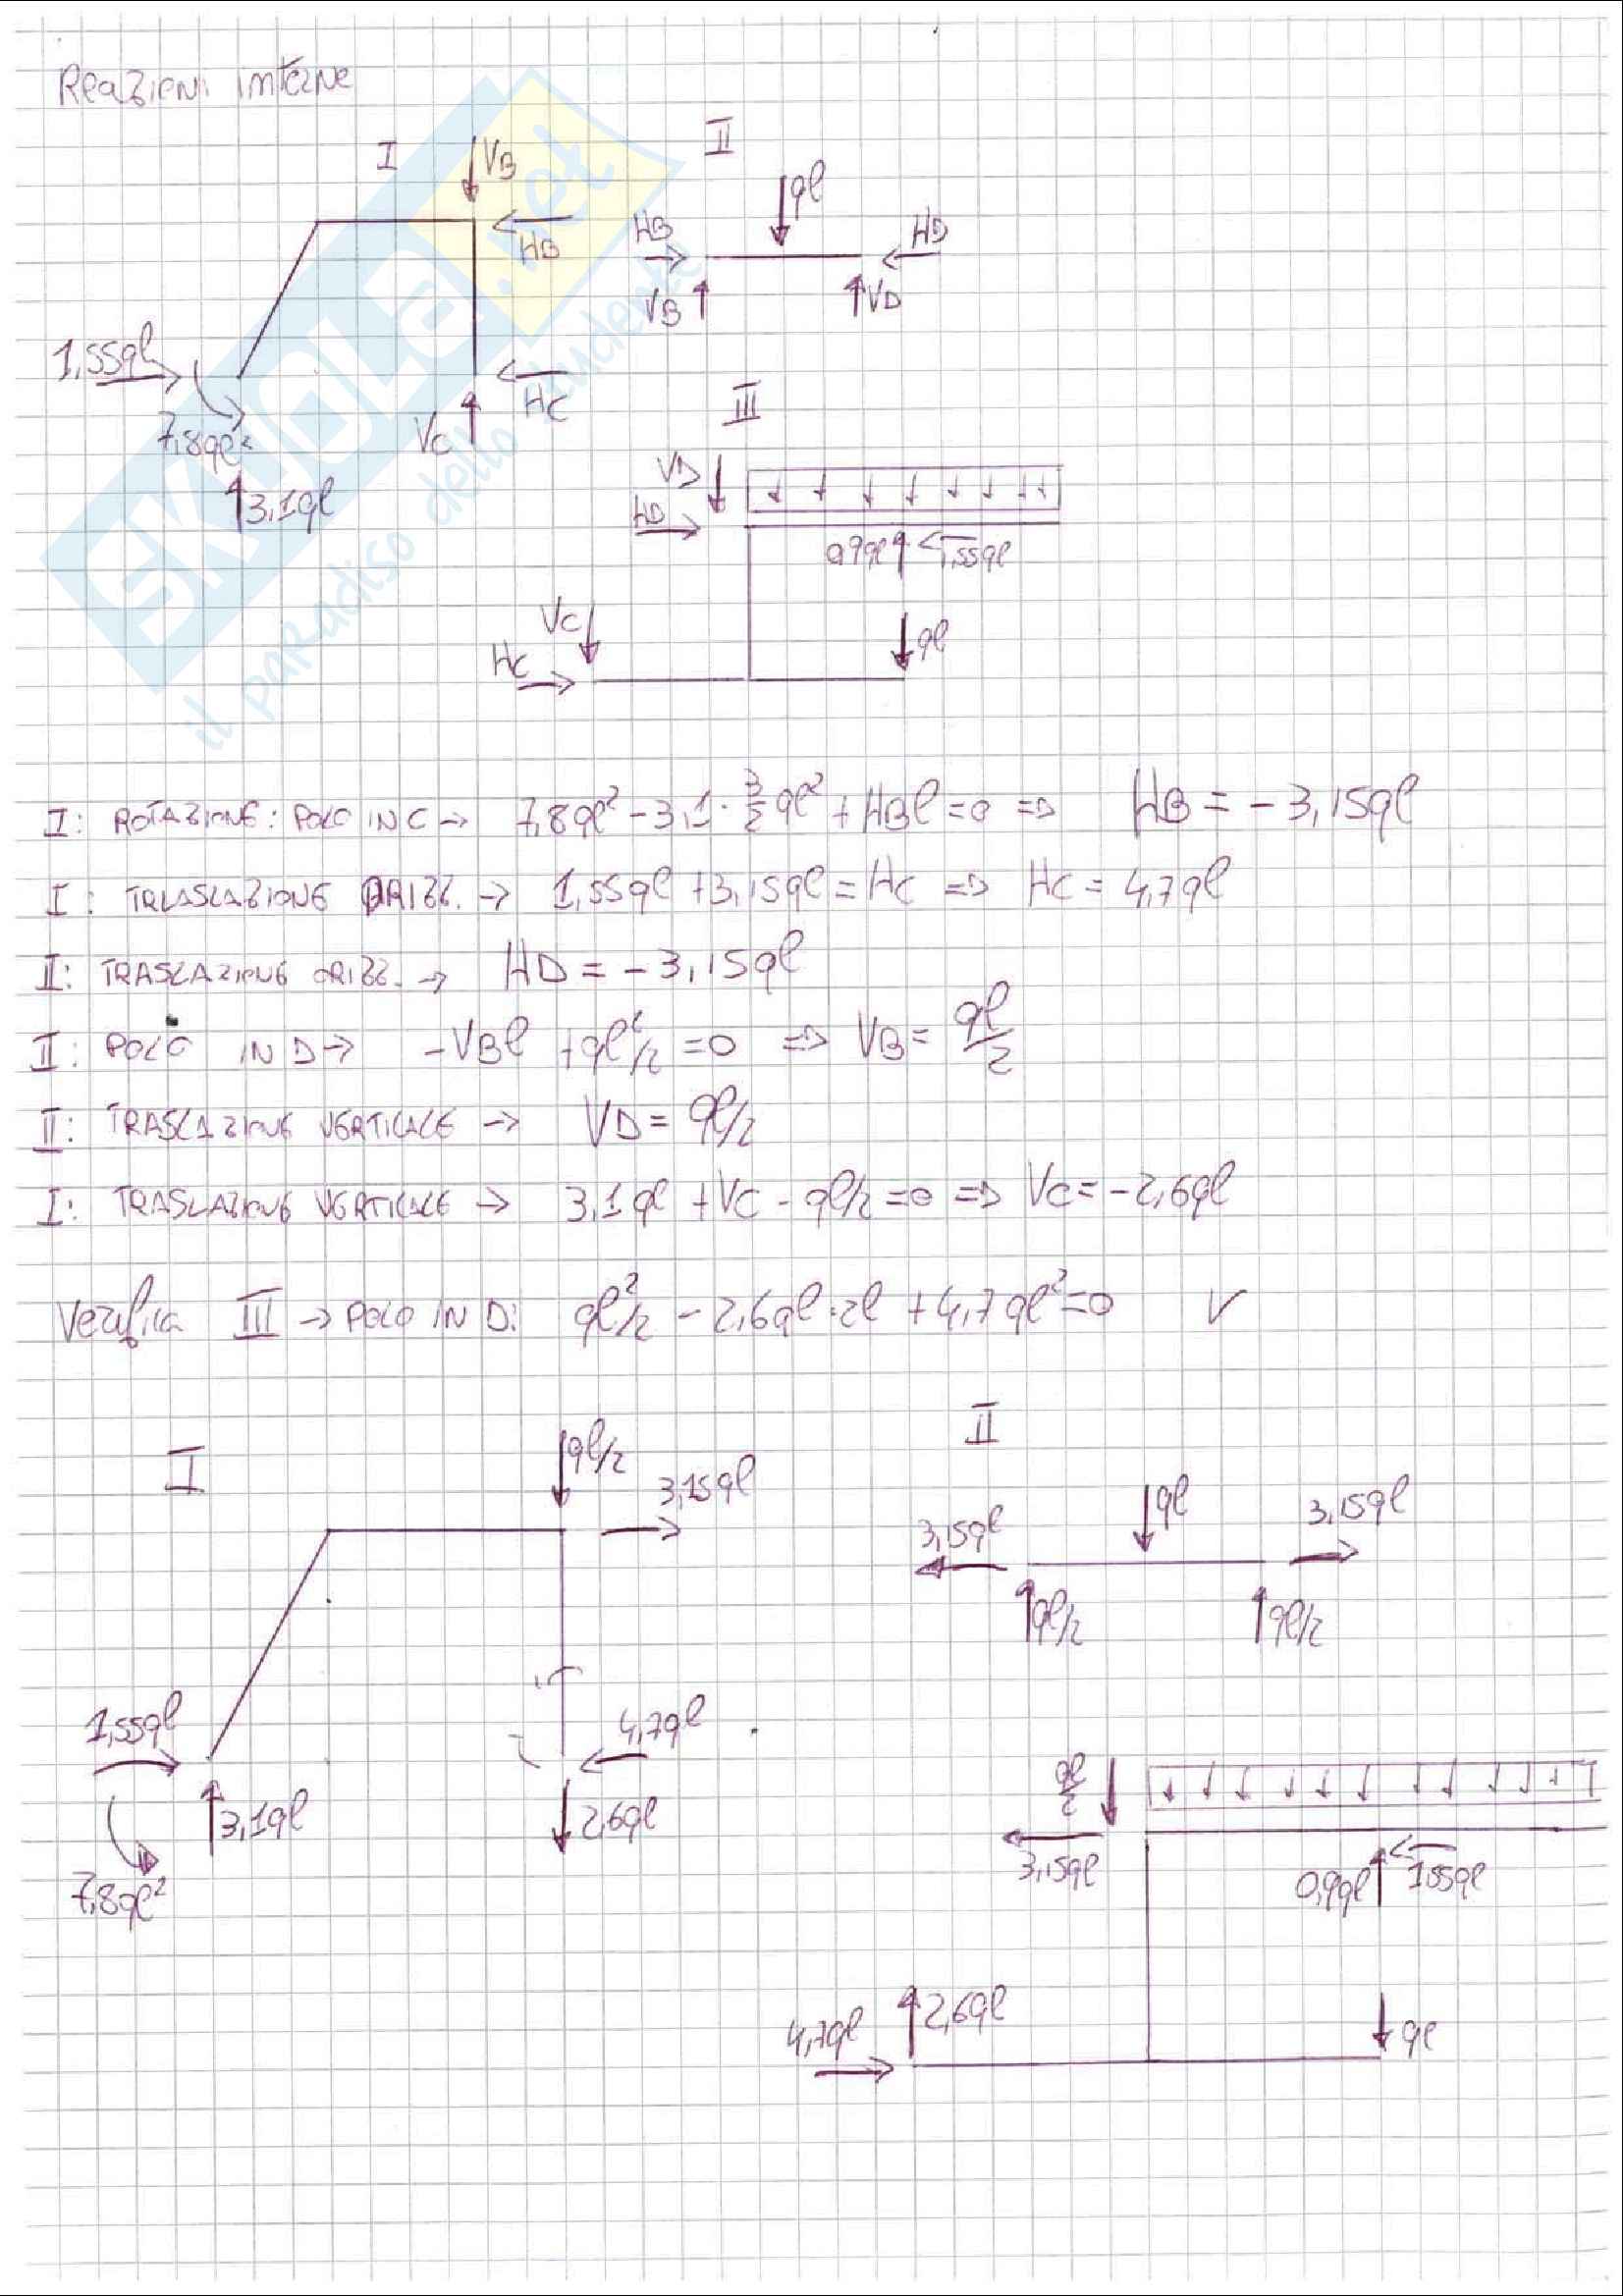 Reazioni interne
I
VB
HB
1,55ql
7,8ql²
3,1ql
VC
HC
II
ql
HB
HD
VB
VD
III
VD
HD
0,9ql
1,55ql
VC
HC
ql
SKUOLA.net
il paradiso dello studente
I: ROTAZIONE: POLO IN C → 7,8ql² - 3,1 · 3/2 ql² + HBl = 0 ⇒ HB = -3,15ql
I: TRLASLAZIONE ORIZZ. → 1,55ql + 3,15ql = HC ⇒ HC = 4,7ql
II: TRASLAZIONE ORIZZ. → HD = -3,15ql
II: POLO IN D → -VBl + ql²/2 = 0 ⇒ VB = ql/2
II: TRASLAZIONE VERTICALE → VD = ql/2
I: TRASLAZIONE VERTICALE → 3,1ql + VC - ql/2 = 0 ⇒ VC = -2,6ql
Verifica III → POLO IN D: ql²/2 - 2,6ql·2l + 4,7ql² = 0 V
I
ql/2
3,15ql
1,55ql
3,1ql
7,8ql²
4,7ql
2,6ql
II
ql
3,15ql
3,15ql
ql/2
ql/2
ql/2
3,15ql
0,9ql
1,55ql
4,7ql
2,6ql
ql